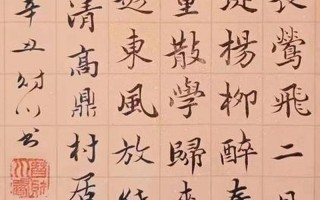 長鶯飛二月
堤楊柳醉春
童散學歸來
趁東風放紙
清高鼎村居
辛丑
書